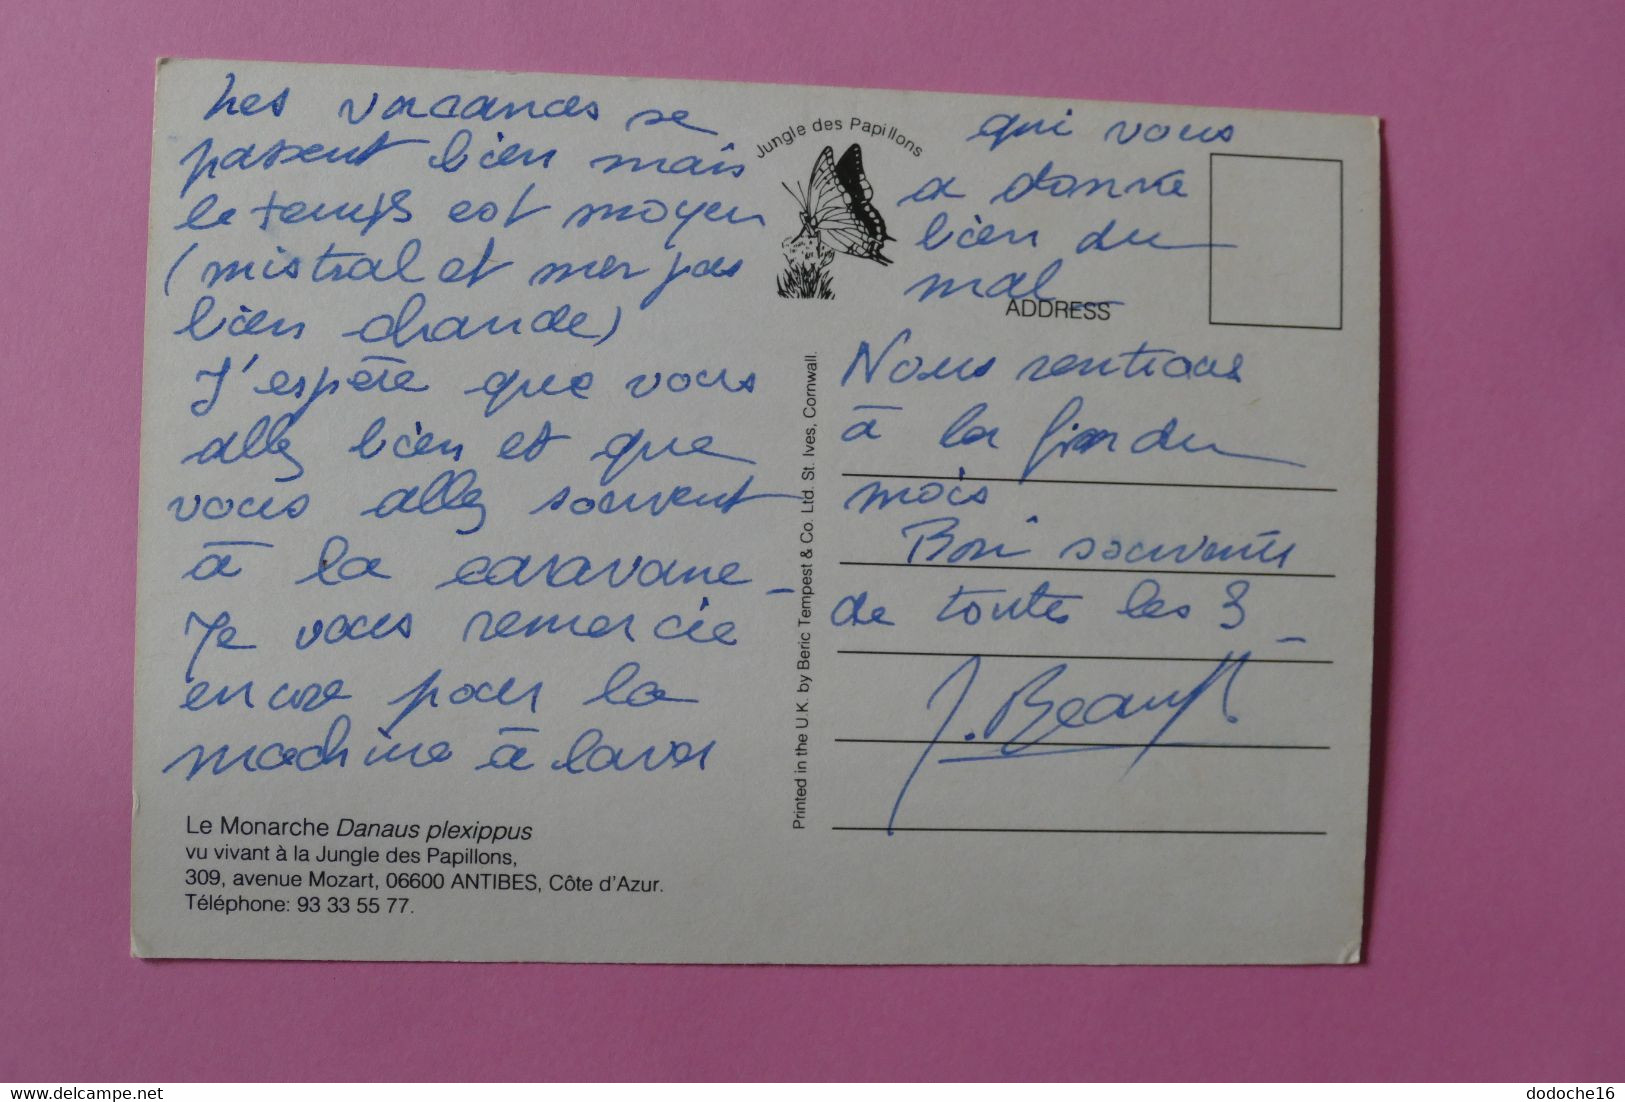 Les vacances se
passent bien mais
le temps est moyen
(mistral et mer pas
bien chaude)
J'espère que vous
allez bien et que
vous allez souvent
à la caravane -
Je vous remercie
encore pour la
machine à laver
Le Monarche Danaus plexippus
vu vivant à la Jungle des Papillons,
309, avenue Mozart, 06600 ANTIBES, Côte d'Azur.
Téléphone: 93 33 55 77.
Jungle des Papillons
Printed in the U.K. by Beric Tempest & Co. Ltd. St. Ives, Cornwall.
qui vous
a donné
bien du
mal
ADDRESS
Nous rentrons
à la fin du
mois
Bon souvenir
de toutes les 3 -
J.
www.delcampe.net
dodoche16